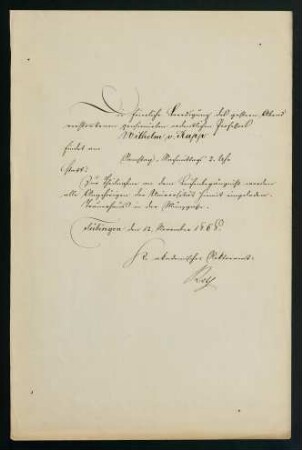 Die feierliche Beerdigung des gestern Abend
verstorbenen pensionirten ordentlichen Professors
Wilhelm v. Rapp
findet am
Samstag, Nachmittags 2 Uhr
statt.
Zur Theilnahme an dem Leichenbegängniß werden
alle Angehörigen der Universität hiemit eingeladen.
Trauerhaus in der Münzgasse.
Tübingen den 12. November 1868.
K. akademisches Rektoramt.